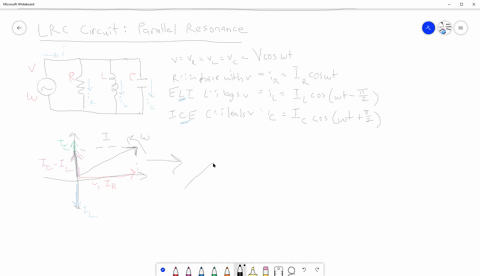 Microsoft Whiteboard
LRC Circuit: Parallel Resonance
i
V
R
L
C
ω
v = v_R = v_L = v_C = V cos ωt
R: i in phase with v ⇒ i_R = I_R cos ωt
ELI L: i lags v ⇒ i_L = I_L cos (ωt − π/2)
ICE C: i leads v ⇒ i_C = I_C cos (ωt + π/2)
I_C
I
ω
I_C − I_L
v, I_R
I_L